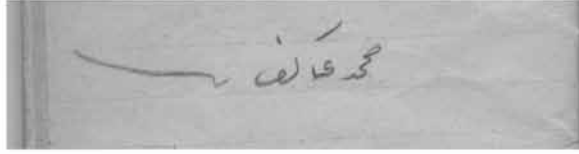 محمد عاكف